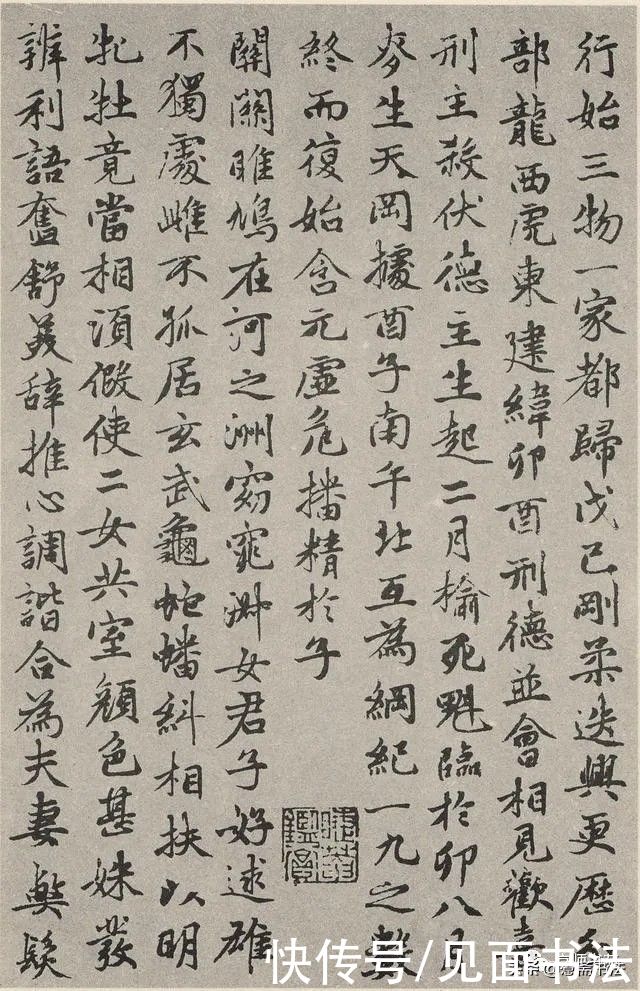 行始三物一家都歸戊己剛柔迭興更歷分
部龍西虎東建緯卯酉刑德並會相見歡喜
刑主殺伏德主生起二月榆死魁臨於卯八月
麥生天岡據酉子南午北互為綱紀一九之數
終而復始含元虛危播精於子
關關雎鳩在河之洲窈窕淑女君子好逑雄
不獨處雌不孤居玄武龜蛇蟠糾相扶以明
牝牡竟當相須假使二女共室顏色甚姝發
辨利語奮舒美辭推心調諧合為夫妻弊髮
快传号/见面书法